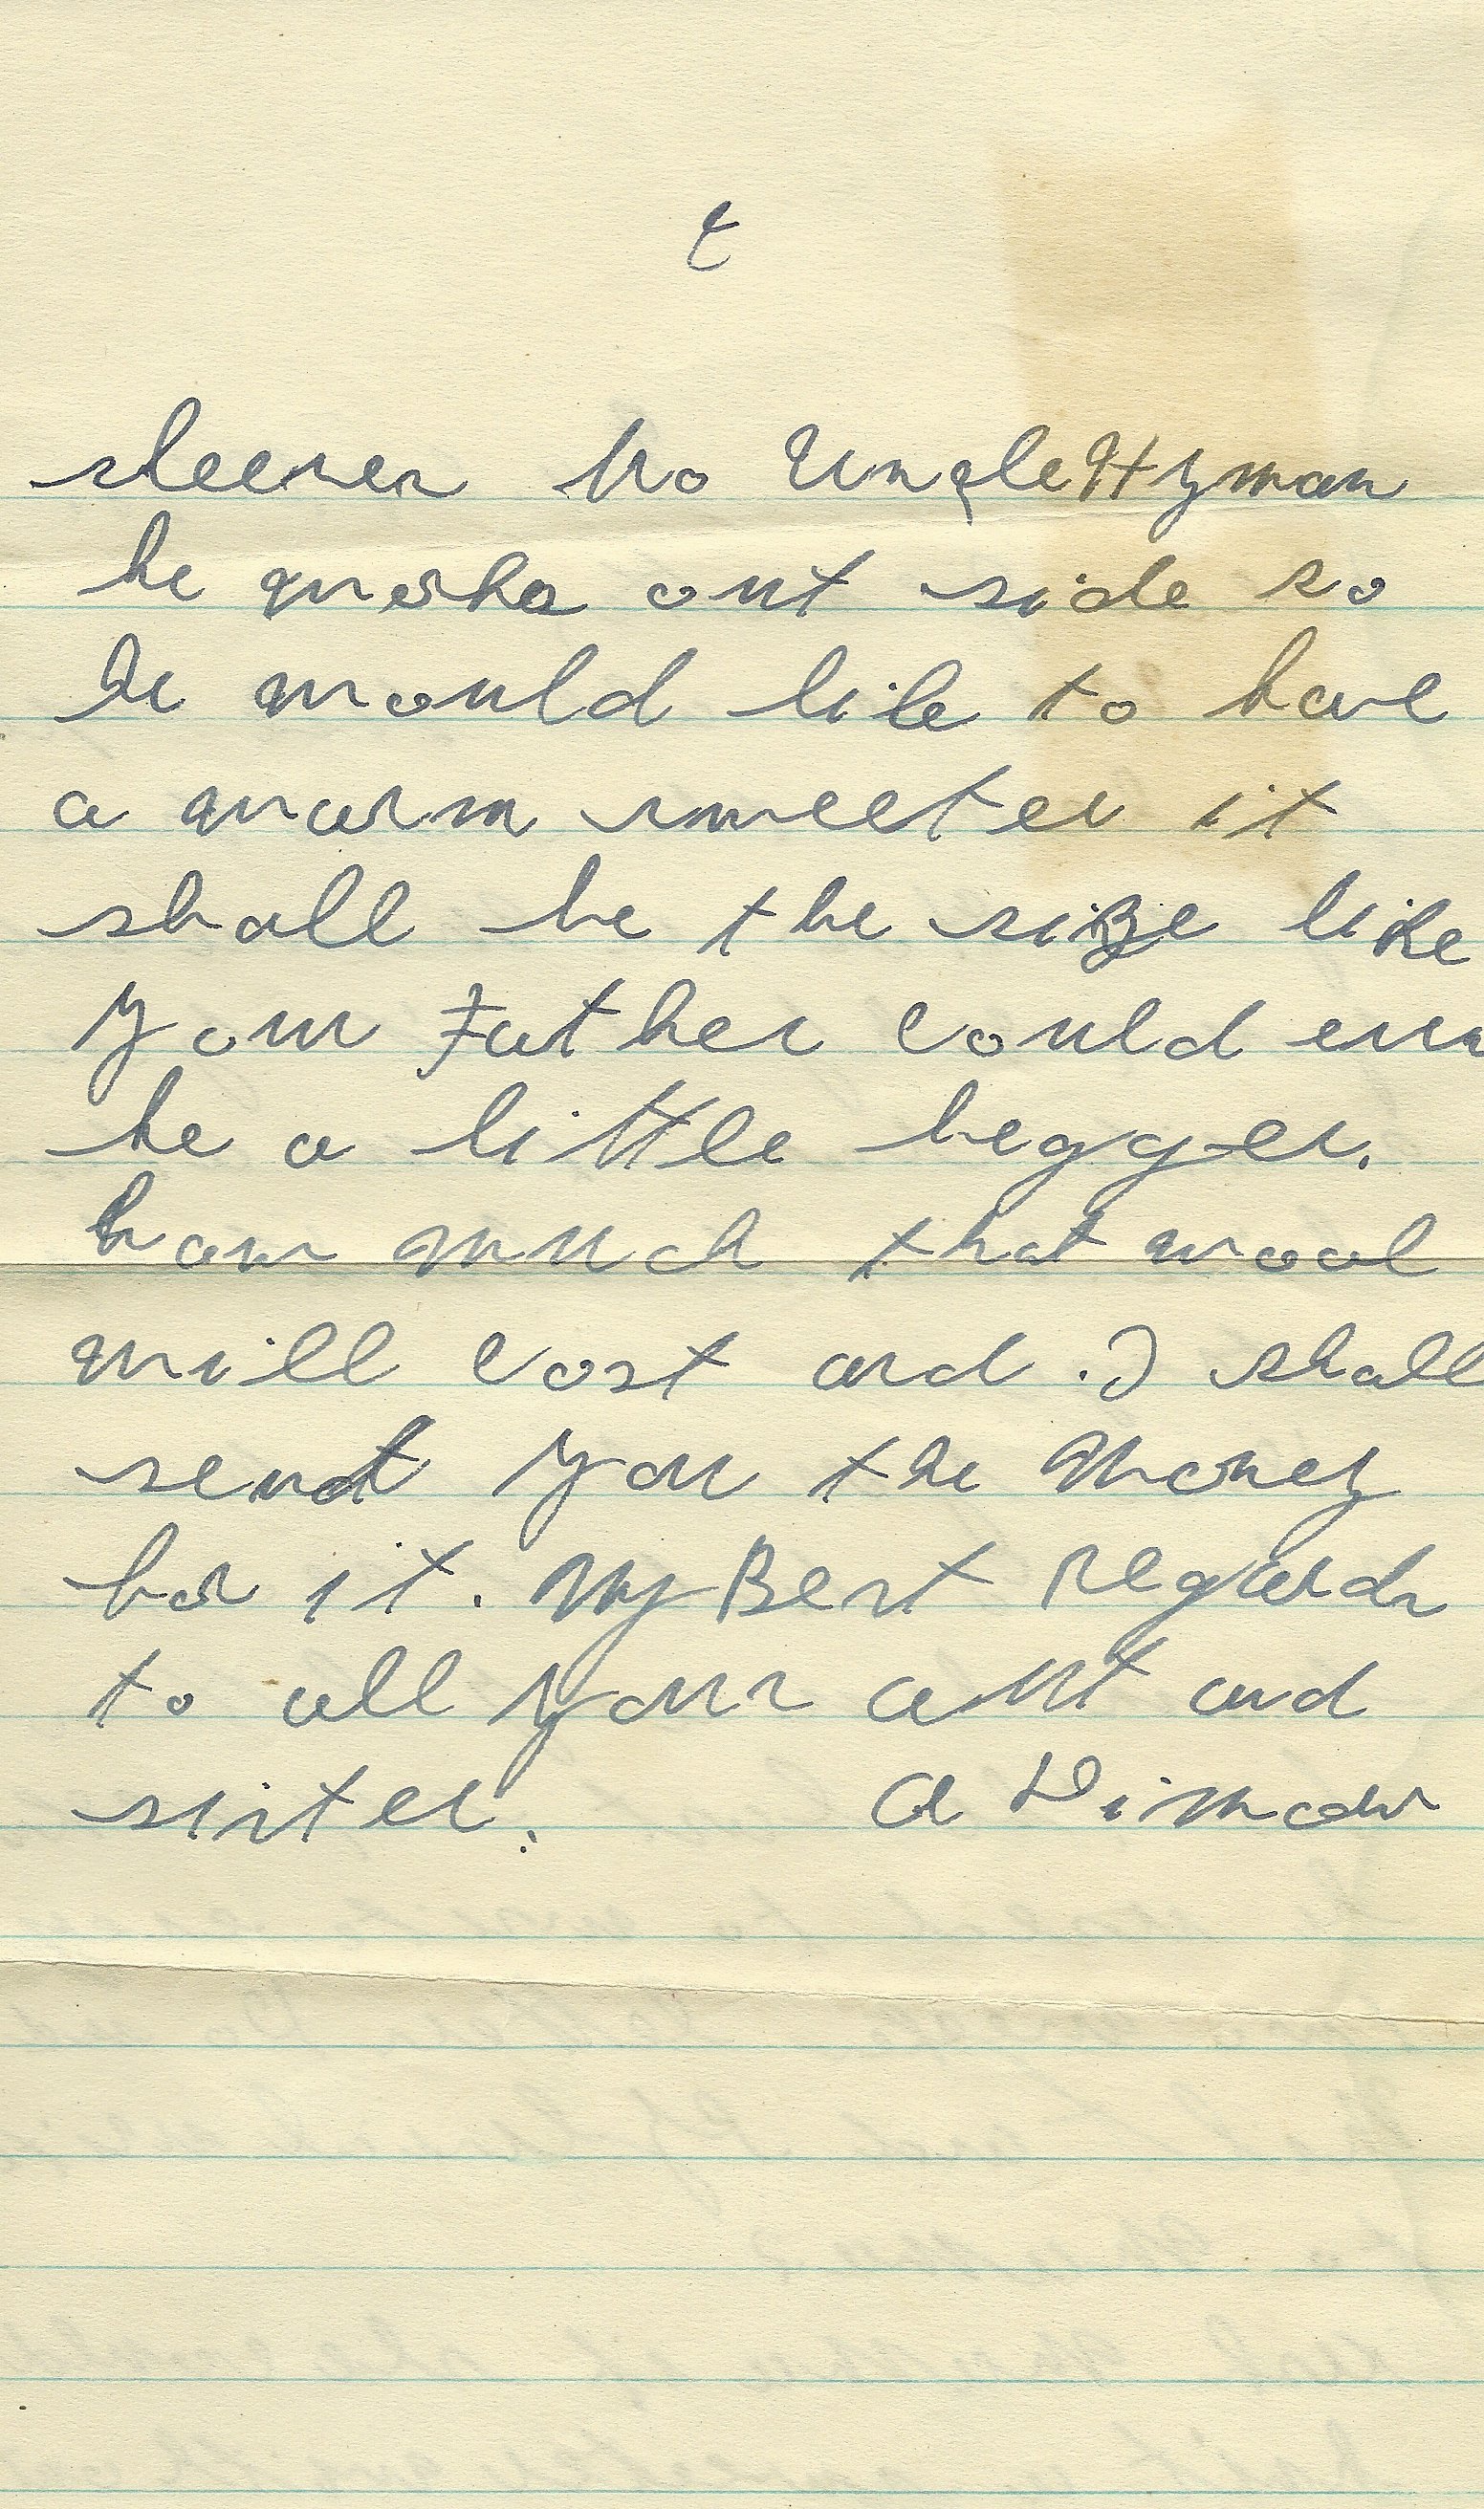 sleeves Uncle Hyman
he works out side so
he would like to have
a warm sweeter it
shall be the size like
your Father could
be a little begger.
how much that wool
will cost and . I shall
send you the Money
for it. My Best regards
to all your ant and
sister.